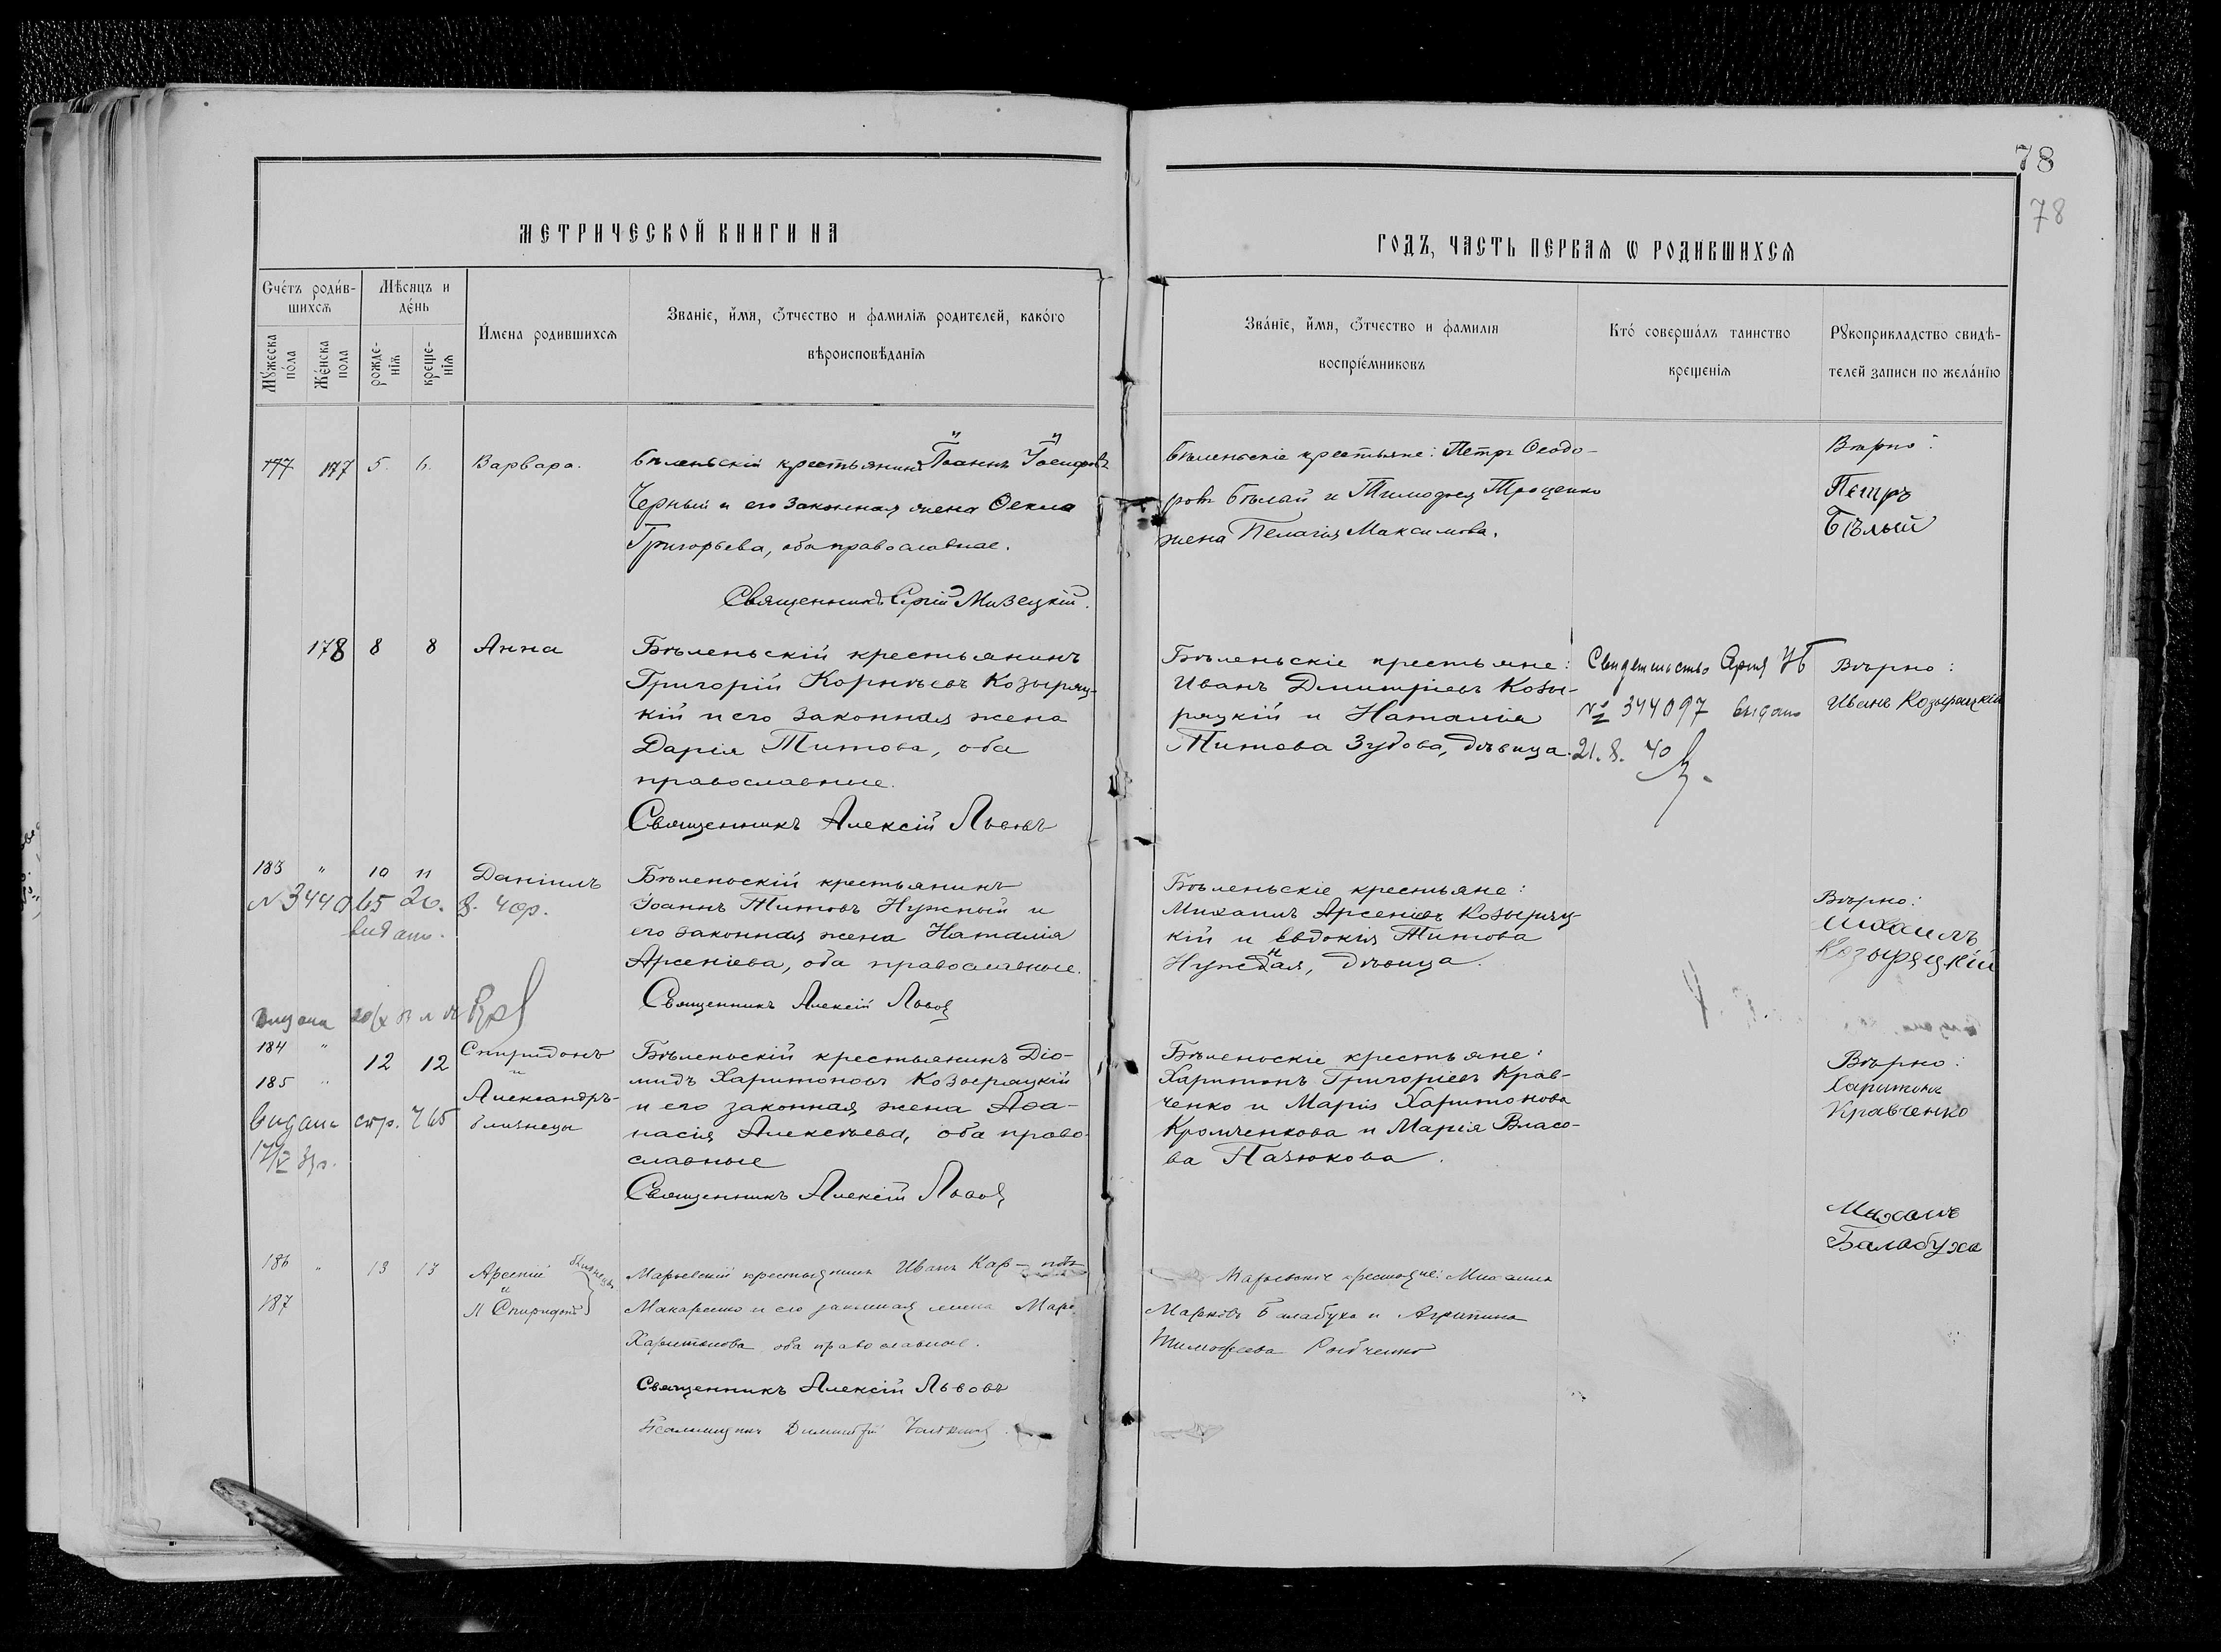 78
78
МЕТРИЧЕСКОЙ КНИГИ НА
ГОДЪ, ЧАСТЬ ПЕРВАѦ Ѡ РОДИВШИХСѦ
Счетъ родив-
шихсѧ
Мѣсяцъ и
день
Мужеска
пола
Женска
пола
рожде-
нїѧ
креще-
нїѧ
Имена родившихсѧ
Званїе, имя, ѿчество и фамилїѧ родителей, какого
вѣроисповѣданїѧ
Званїе, имя, ѿчество и фамилїя
воспрїемниковъ
Кто совершалъ таинство
крещенїѧ
Рꙋкоприкладство свидѣ-
телей записи по желанїю
177 177 5. 6. Варвара.
Бѣленьскій крестьянинъ Іоаннъ Іосифовъ
Черный и его законная жена Ѳекла
Григорьева, оба православные.
Священникъ Сергій Мизецкій.
Бѣленьскіе крестьяне: Петръ Ѳеодо-
ровъ Бѣлый и Тимофея Троценко
жена Пелагія Максимова.
Вѣрно:
Петръ
Бѣлый
178 8 8 Анна
Бѣленьскій крестьянинъ
Григорій Корнѣевъ Козыряц-
кій и его законная жена
Дарія Титова, оба
православные.
Священникъ Алексій Львовъ
Бѣленьскіе крестьяне:
Иванъ Димитріевъ Козы-
ряцкій и Наталія
Титова Зудова, дѣвица.
Свидетельство
№ 344097 выдано
21. 8. 40
Вѣрно:
Иванъ Козыряцкій
183 " 10 11 Даніилъ
№ 344065 20. 8. 40р.
видано.
Бѣленьскій крестьянинъ
Іоаннъ Титовъ Нужный и
его законная жена Наталія
Арсеніева, оба православные.
Священникъ Алексій Львовъ
Бѣленьскіе крестьяне:
Михаилъ Арсеніевъ Козыряц-
кій и Евдокія Титова
Нужная, дѣвица.
Вѣрно:
Михаилъ
Козыряцкій
184 "
185 "
12 12
Спиридонъ
и
Александръ-
близнецы
видана стр. 765
Бѣленьскій крестьянинъ Діо-
мидъ Харитоновъ Козыряцкій
и его законная жена Аѳа-
насія Алексѣева, оба право-
славные
Священникъ Алексій Львовъ
Бѣленьскіе крестьяне:
Харитонъ Григоріевъ Крав-
ченко и Марія Харитонова
Кромченкова и Марія Власо-
ва Пазюкова.
Вѣрно:
Харитонъ
Кравченко
186 " 13 13 Арсеній
187
и Спиридонъ
близнецы
Марьевскій крестьянинъ Иванъ Кар-повъ
Макаренко и его законная жена
Харитонова оба православные.
Священникъ Алексій Львовъ
Псаломщикъ Димитрій
Марьевскіе крестьяне: Михаилъ
Марковъ Балабуха и Агрипина
Тимофеева
Михаилъ
Балабуха